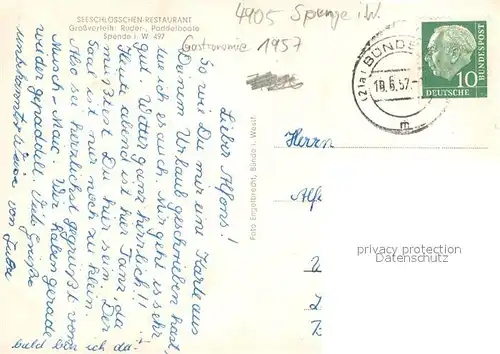 SEESCHLÖSSCHEN-RESTAURANT
Großverleih: Ruder-, Paddelboote
Spende i. W. 497
4905 Spenge i.W.
Gastronomie 1957
(21a) BÜNDE
10.6.57.-
m
10
DEUTSCHE
BUNDESPOST
Lieber Alfons!
So wie Du mir eine Karte aus
Deinem Urlaub geschrieben hast,
tue ich es auch. Mir geht es sehr
gut. Wetter ganz herrlich!!
Heute abend ist hier Tanz, da
müßtest Du hier sein. Der
Saal ist nur noch zu klein.
Also sei herzlichst gegrüßt von
Wir haben gerade
wieder gepaddelt. Viele Grüße
unbekannterweise von
bald bin ich da!
Foto Engelbrecht, Bünde i. Westf.
Herrn
Alfo
privacy protection
Datenschutz